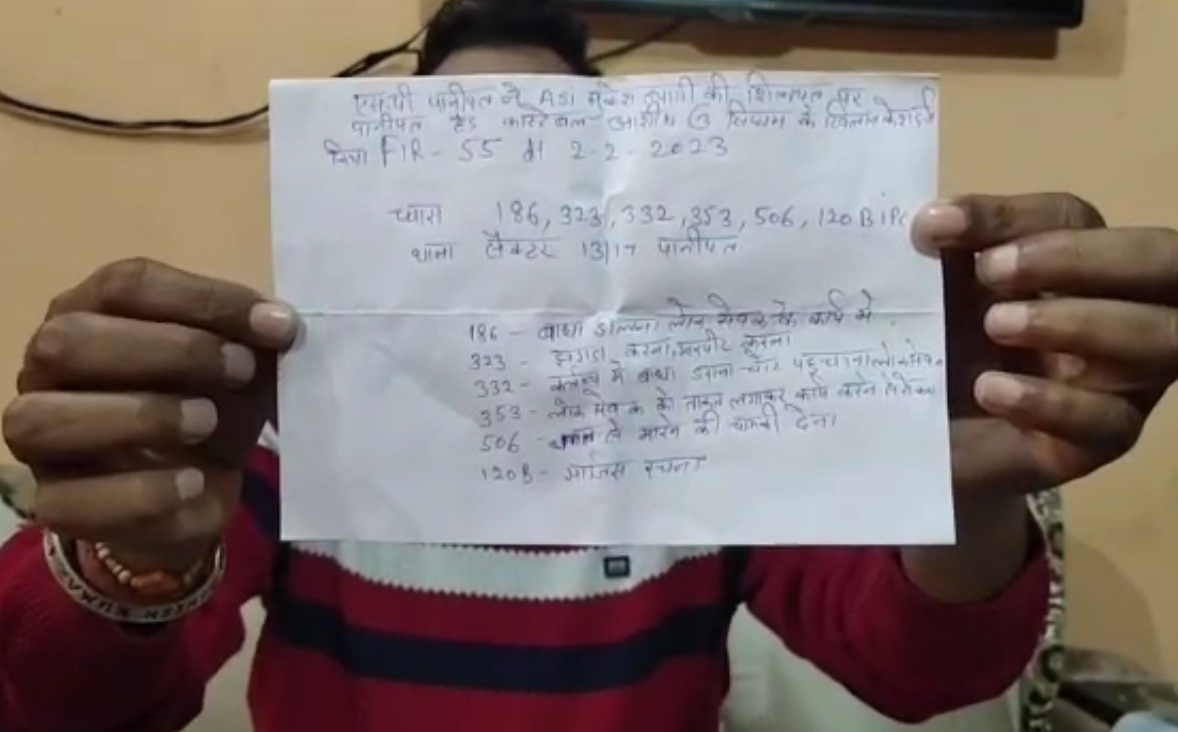 एसपी पानीपत ने ASI मुकेश त्यागी की शिकायत पर
पानीपत हैड कांस्टेबल आशीष विकास के खिलाफ केश दर्ज
किया FIR - 55 dt 2-2-2023
धारा 186, 323, 332, 353, 506, 120B IPC
थाना सैक्टर 13/17 पानीपत
186 - बाधा डालना लोक सेवक के कार्य मे
323 - झगडा करना, मारपीट करना
332 - कर्तव्य मे बाधा डालना चोट पहूचाना लोक सेवक
353 - लोक सेवक को ताकत लगाकर कार्य करने से रोकना
506 - से मारने की धमकी देना
120B - साजिस रचना
KUMAR